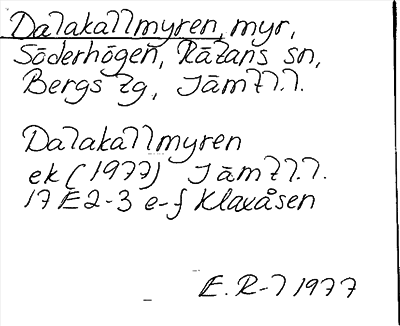 Dalakallmyren, myr,
Söderhögen, Rätans sn,
Bergs tg, Jämtl.l.
Dalakallmyren
ek (1977) Jämtl.l.
17 E 2-3 e-f Klaxåsen
E. R-l 1977